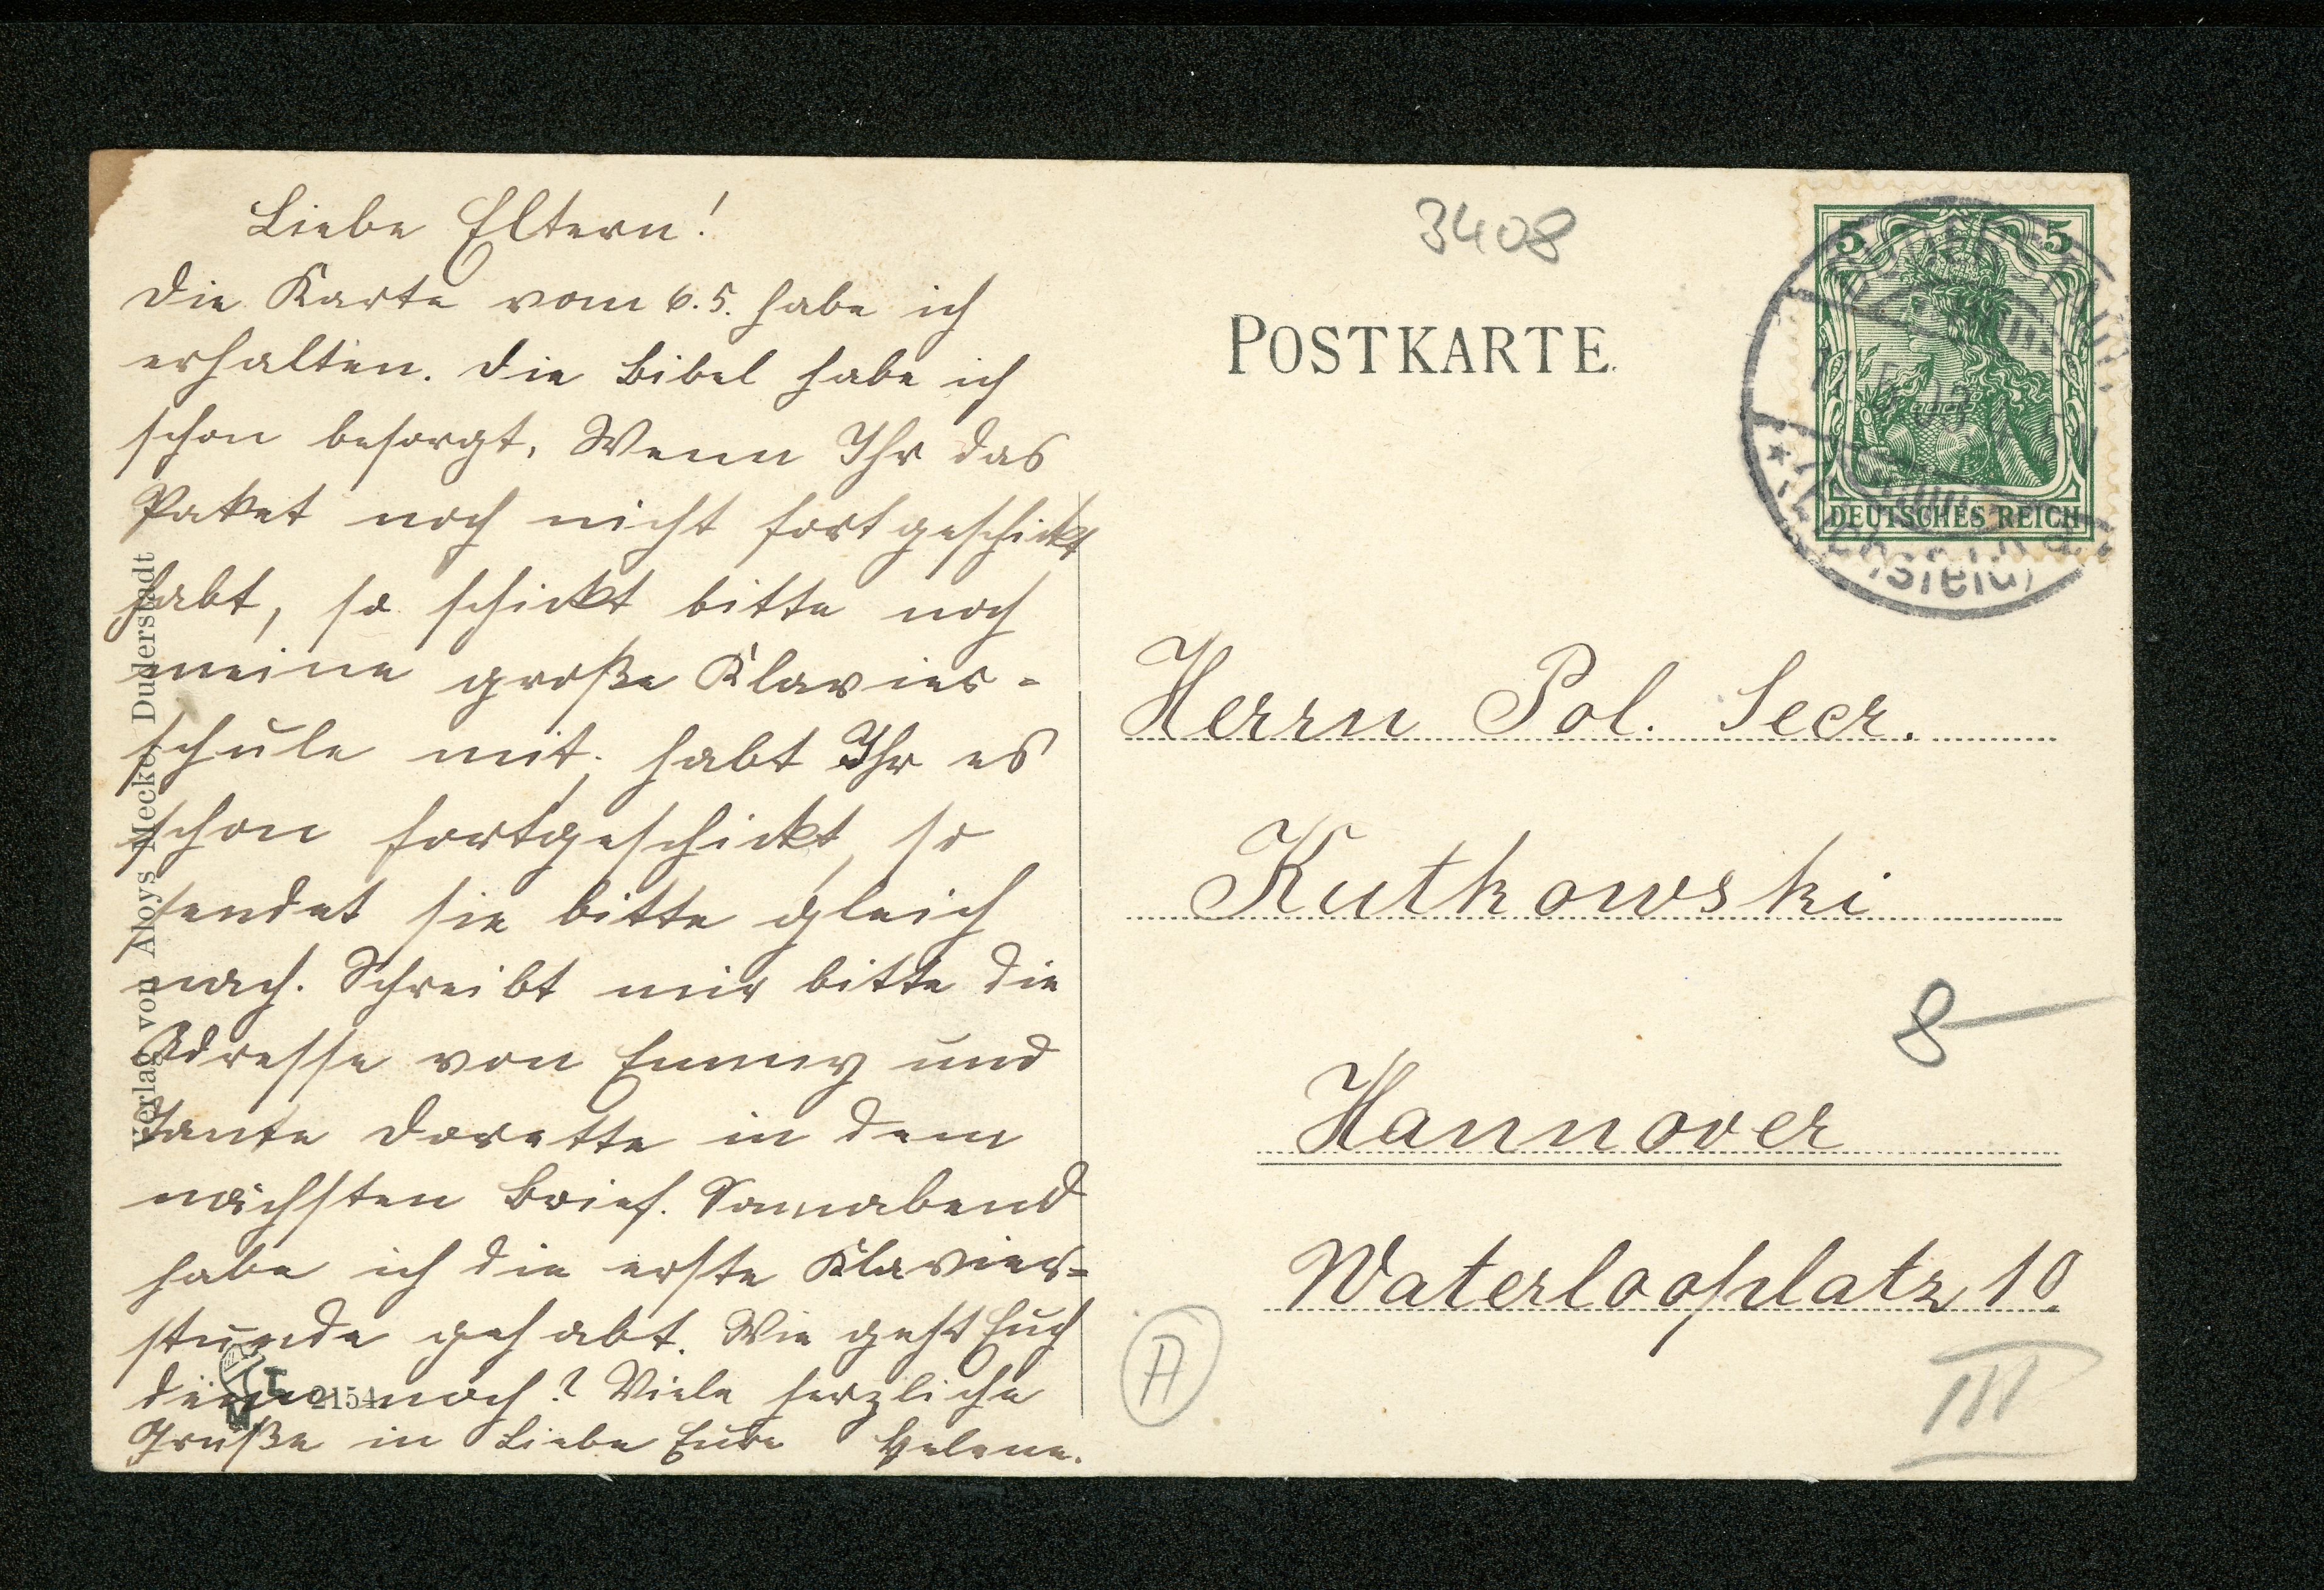 Liebe Eltern!
Die Karte vom 6.5. habe ich
erhalten. Die Bibel habe ich
schon besorgt. Wenn Ihr das
Paket noch nicht fortgeschickt
habt, so schickt bitte noch
meine große Klavier-
schule mit; habt Ihr es
schon fortgeschickt, so
sendet sie bitte gleich
nach. Schreibt mir bitte die
Adresse von Emmy und
Tante Dorette in dem
nächsten Brief. Sonnabend
habe ich die erste Klavier-
stunde gehabt. Wie geht Euch
denn noch? Viele herzliche
Grüße in Liebe Eure Helene.
Verlag von Aloys Mecke, Duderstadt
2154
3408
POSTKARTE
5 5
DEUTSCHES REICH
(Eichsfeld)
Herrn Pol. Secr.
Kutkowski
8
Hannover
Waterlooplatz 10.
A
III